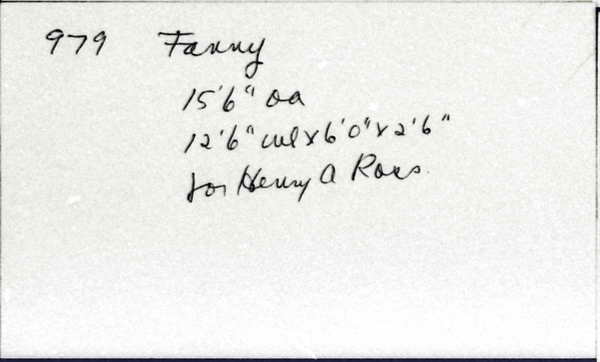 979 Fanny
15'6" oa
12'6" wl x 6'0" x 2'6"
for Henry A Ross.